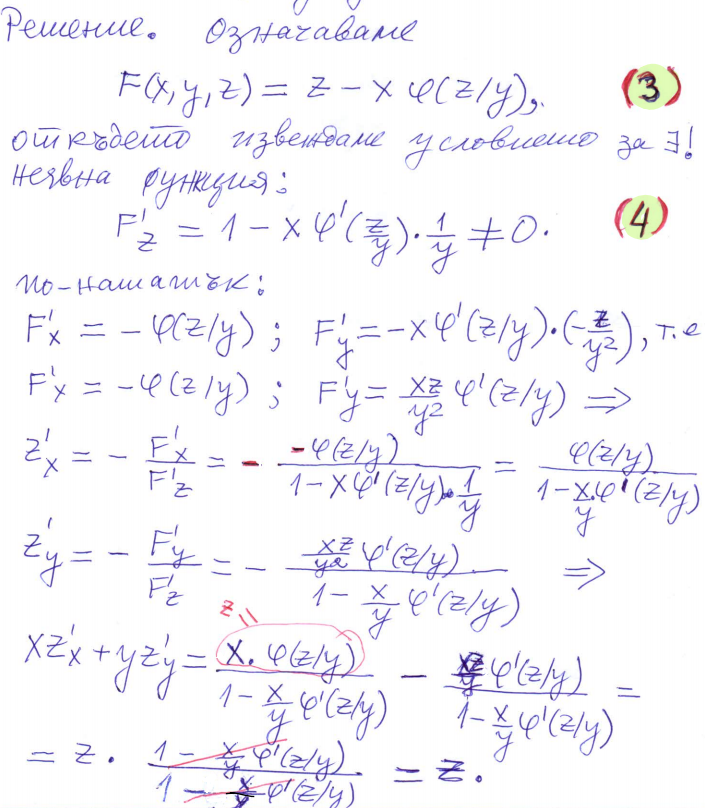 Решение. Означаваме
F(x,y,z) = z − x φ(z/y), (3)
откъдето извеждаме условието за ∃!
неявна функция:
F'z = 1 − x φ'(z/y)·1/y ≠ 0. (4)
по-нататък:
F'x = −φ(z/y) ; F'y = −xφ'(z/y)·(−z/y²), т.е
F'x = −φ(z/y) ; F'y = xz/y² φ'(z/y) ⇒
z'x = − F'x/F'z = − −φ(z/y)/(1−xφ'(z/y)·1/y) = φ(z/y)/(1−x/y·φ'(z/y))
z'y = − F'y/F'z = − (xz/y² φ'(z/y))/(1− x/y φ'(z/y)) ⇒
z =
xz'x + yz'y = x·φ(z/y)/(1− x/y φ'(z/y)) − (xz/y φ'(z/y))/(1− x/y φ'(z/y)) =
= z · (1 − x/y φ'(z/y))/(1 − x/y φ'(z/y)) = z.